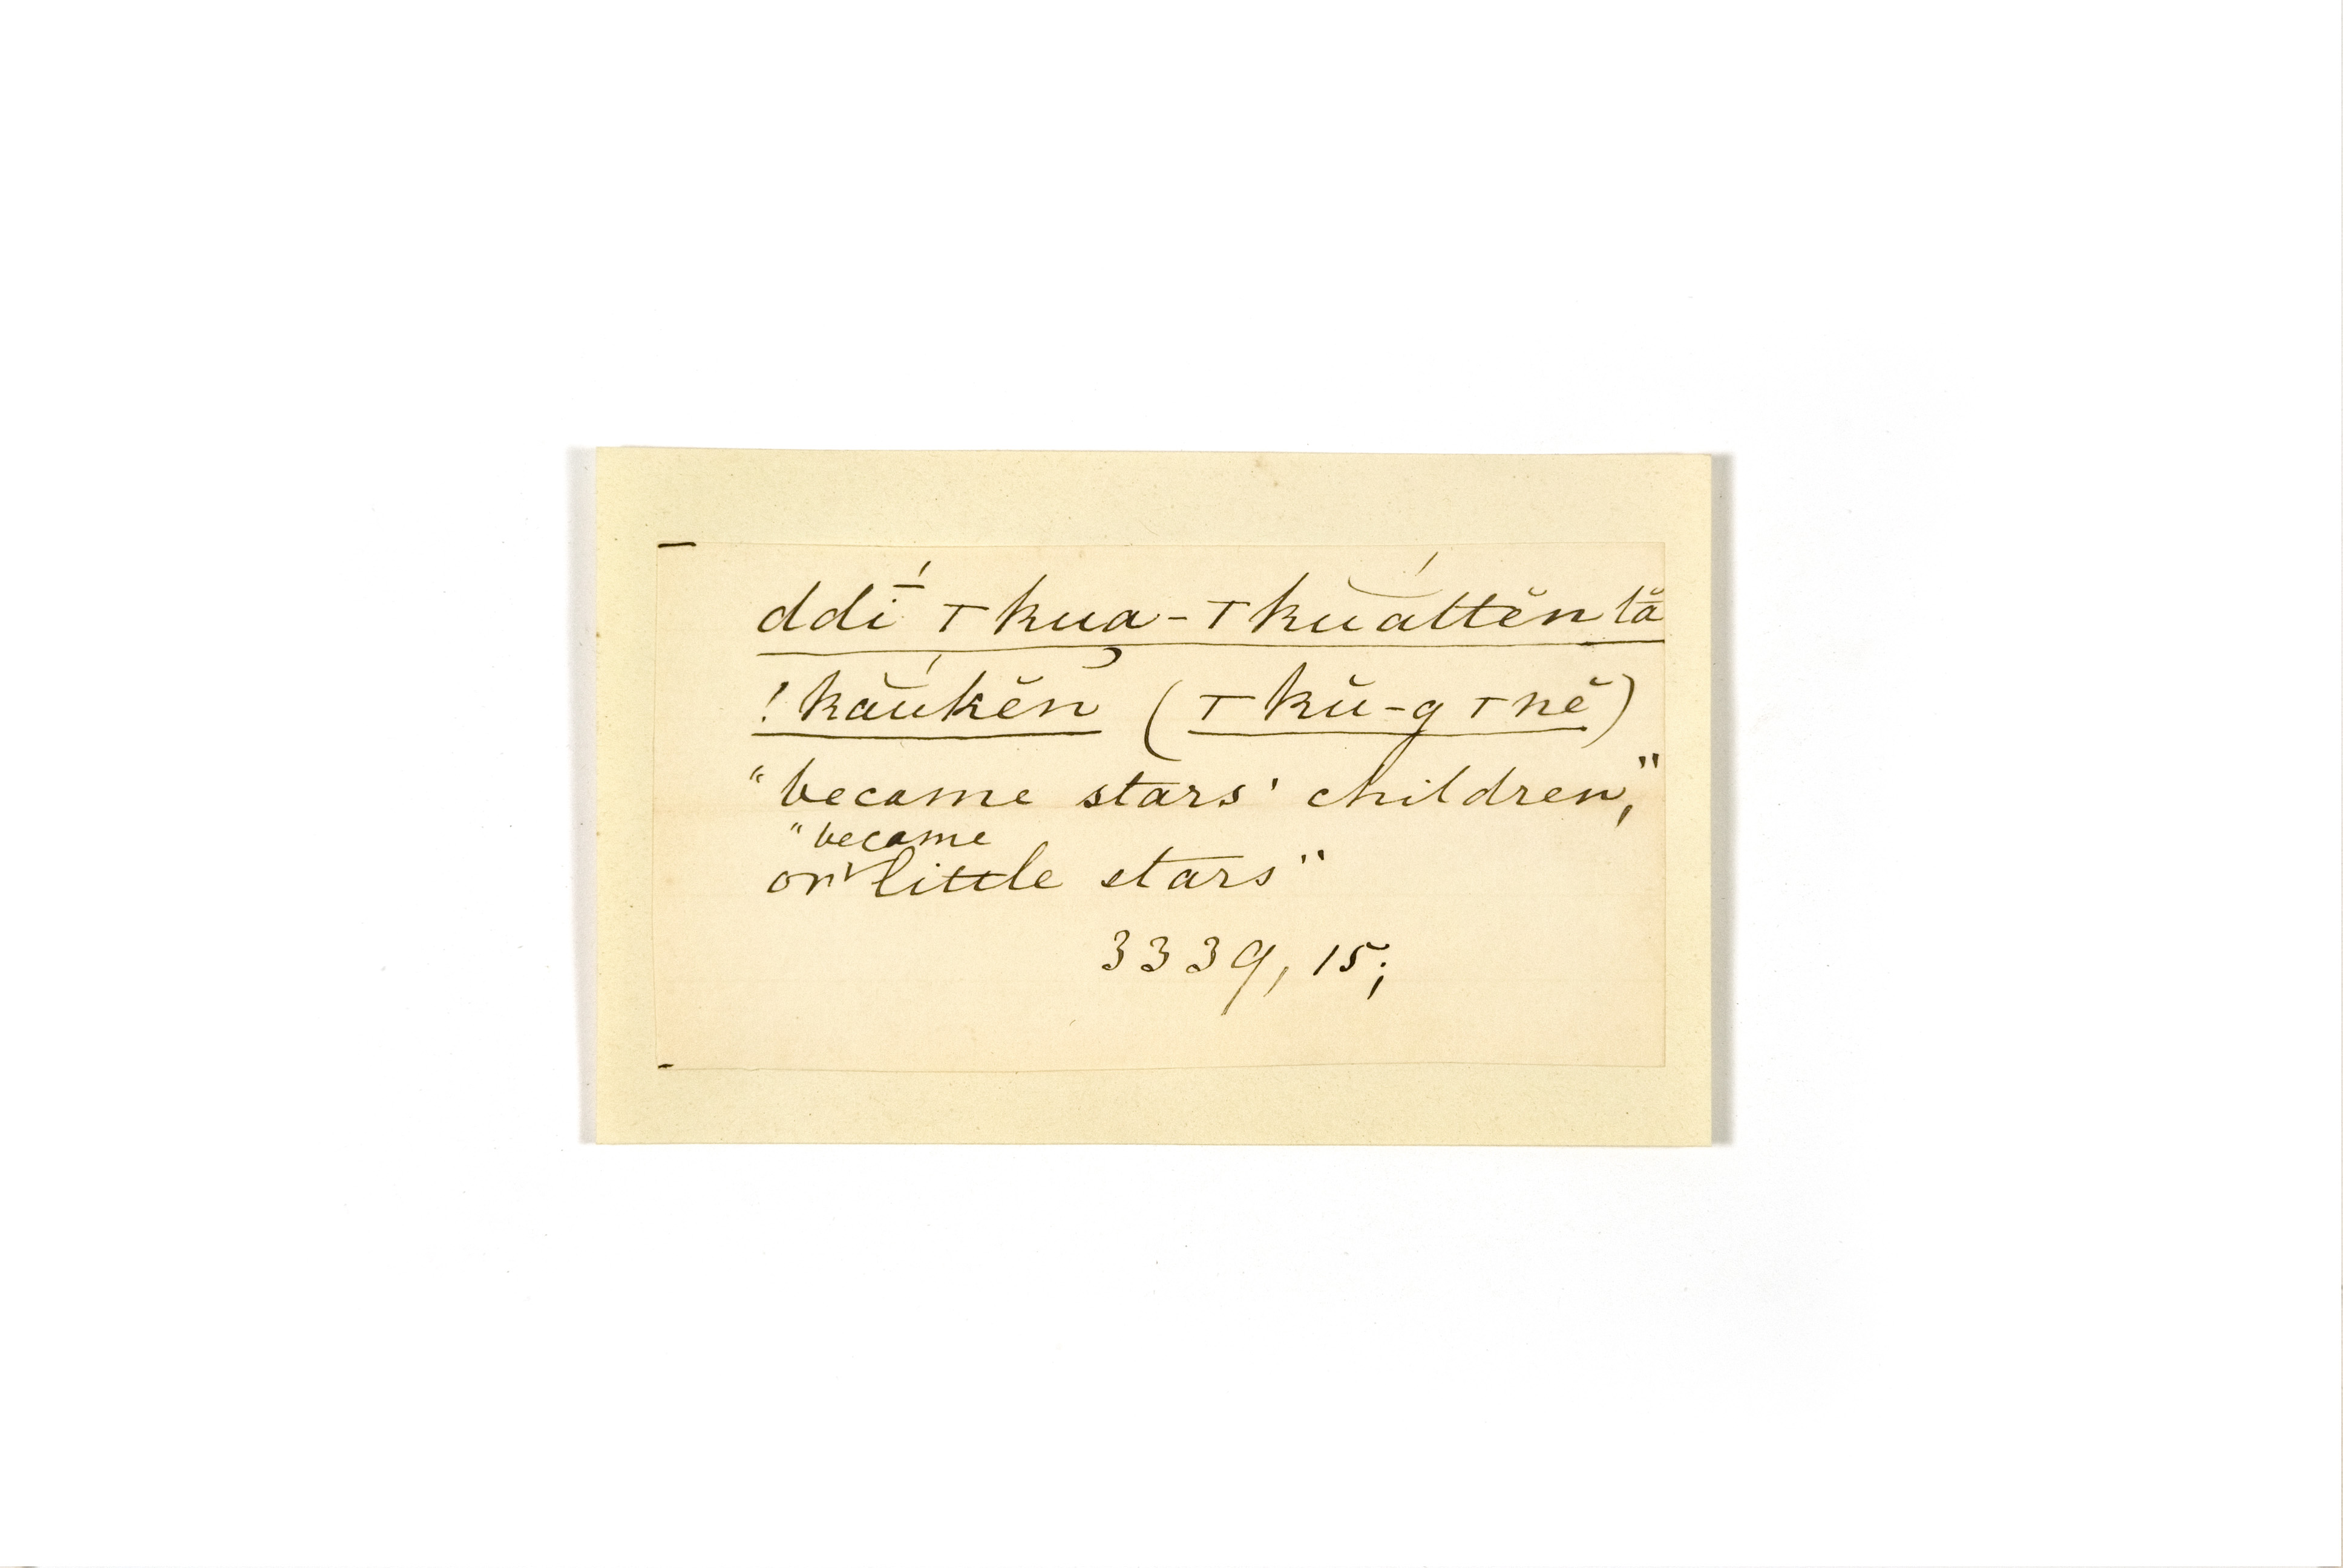 ddī́ ⊤kua-⊤kŭáttĕn tă̄
!kắŭkĕn (⊤kŭ-g⊤nĕ)
"became stars' children,"
or "became little stars"
3339, 15;